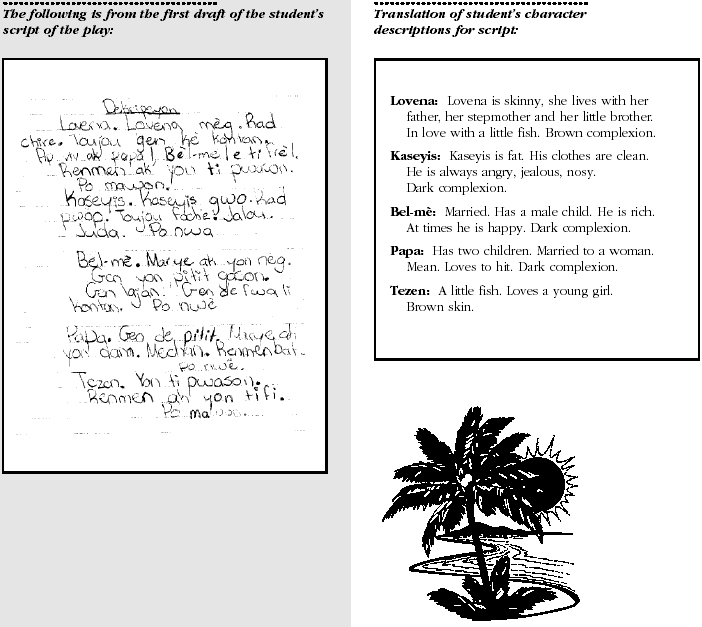 The following is from the first draft of the student's
script of the play:
Deksripsyon
Lovena. Lovena mèg. Rad
chire. Toujou gen kè kontan.
Av viv ak papa l, Bèl-mè l e ti frèl.
Renmen ak yon ti pwason.
Po mawon.
Kaseyis. Kaseyis gwo. Rad
pwòp. Toujou fache. Jalou.
Juda. Po nwa
Bèl-mè. Marye ak yon nèg.
Gen yon pitit gason.
Gen lajan. Gen de fwa li
kontan. Po nwè
Papa. Gen de pitit. Marye ak
yon dam. Mechan. Renmen bat.
Po nwè.
Tezen. Yon ti pwason.
Renmen ak yon tifi.
Po
Translation of student's character
descriptions for script:
Lovena: Lovena is skinny, she lives with her
father, her stepmother and her little brother.
In love with a little fish. Brown complexion.
Kaseyis: Kaseyis is fat. His clothes are clean.
He is always angry, jealous, nosy.
Dark complexion.
Bel-mè: Married. Has a male child. He is rich.
At times he is happy. Dark complexion.
Papa: Has two children. Married to a woman.
Mean. Loves to hit. Dark complexion.
Tezen: A little fish. Loves a young girl.
Brown skin.